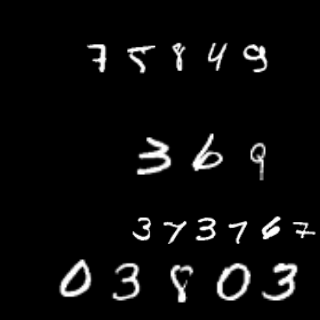 75849
369
373767
03803